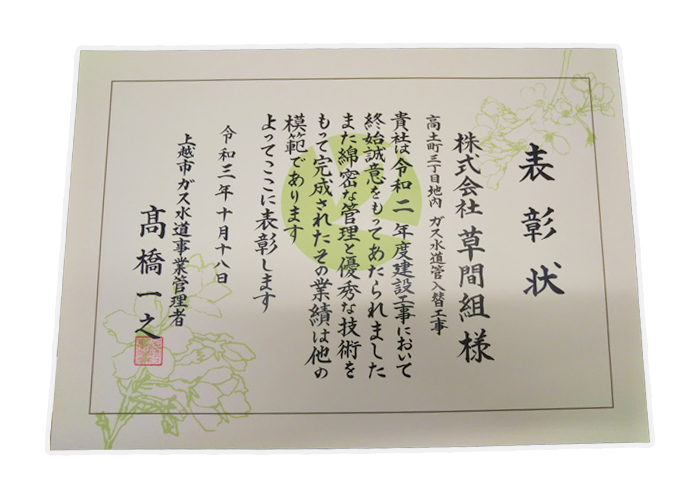 表彰状
株式会社 草間組 様
高土町三丁目地内 ガス水道管入替工事
貴社は令和二年度建設工事において
終始誠意をもってあたられました
また綿密な管理と優秀な技術を
もって完成されたその業績は他の
模範であります
よってここに表彰します
令和三年十月十八日
上越市ガス水道事業管理者
髙橋一之